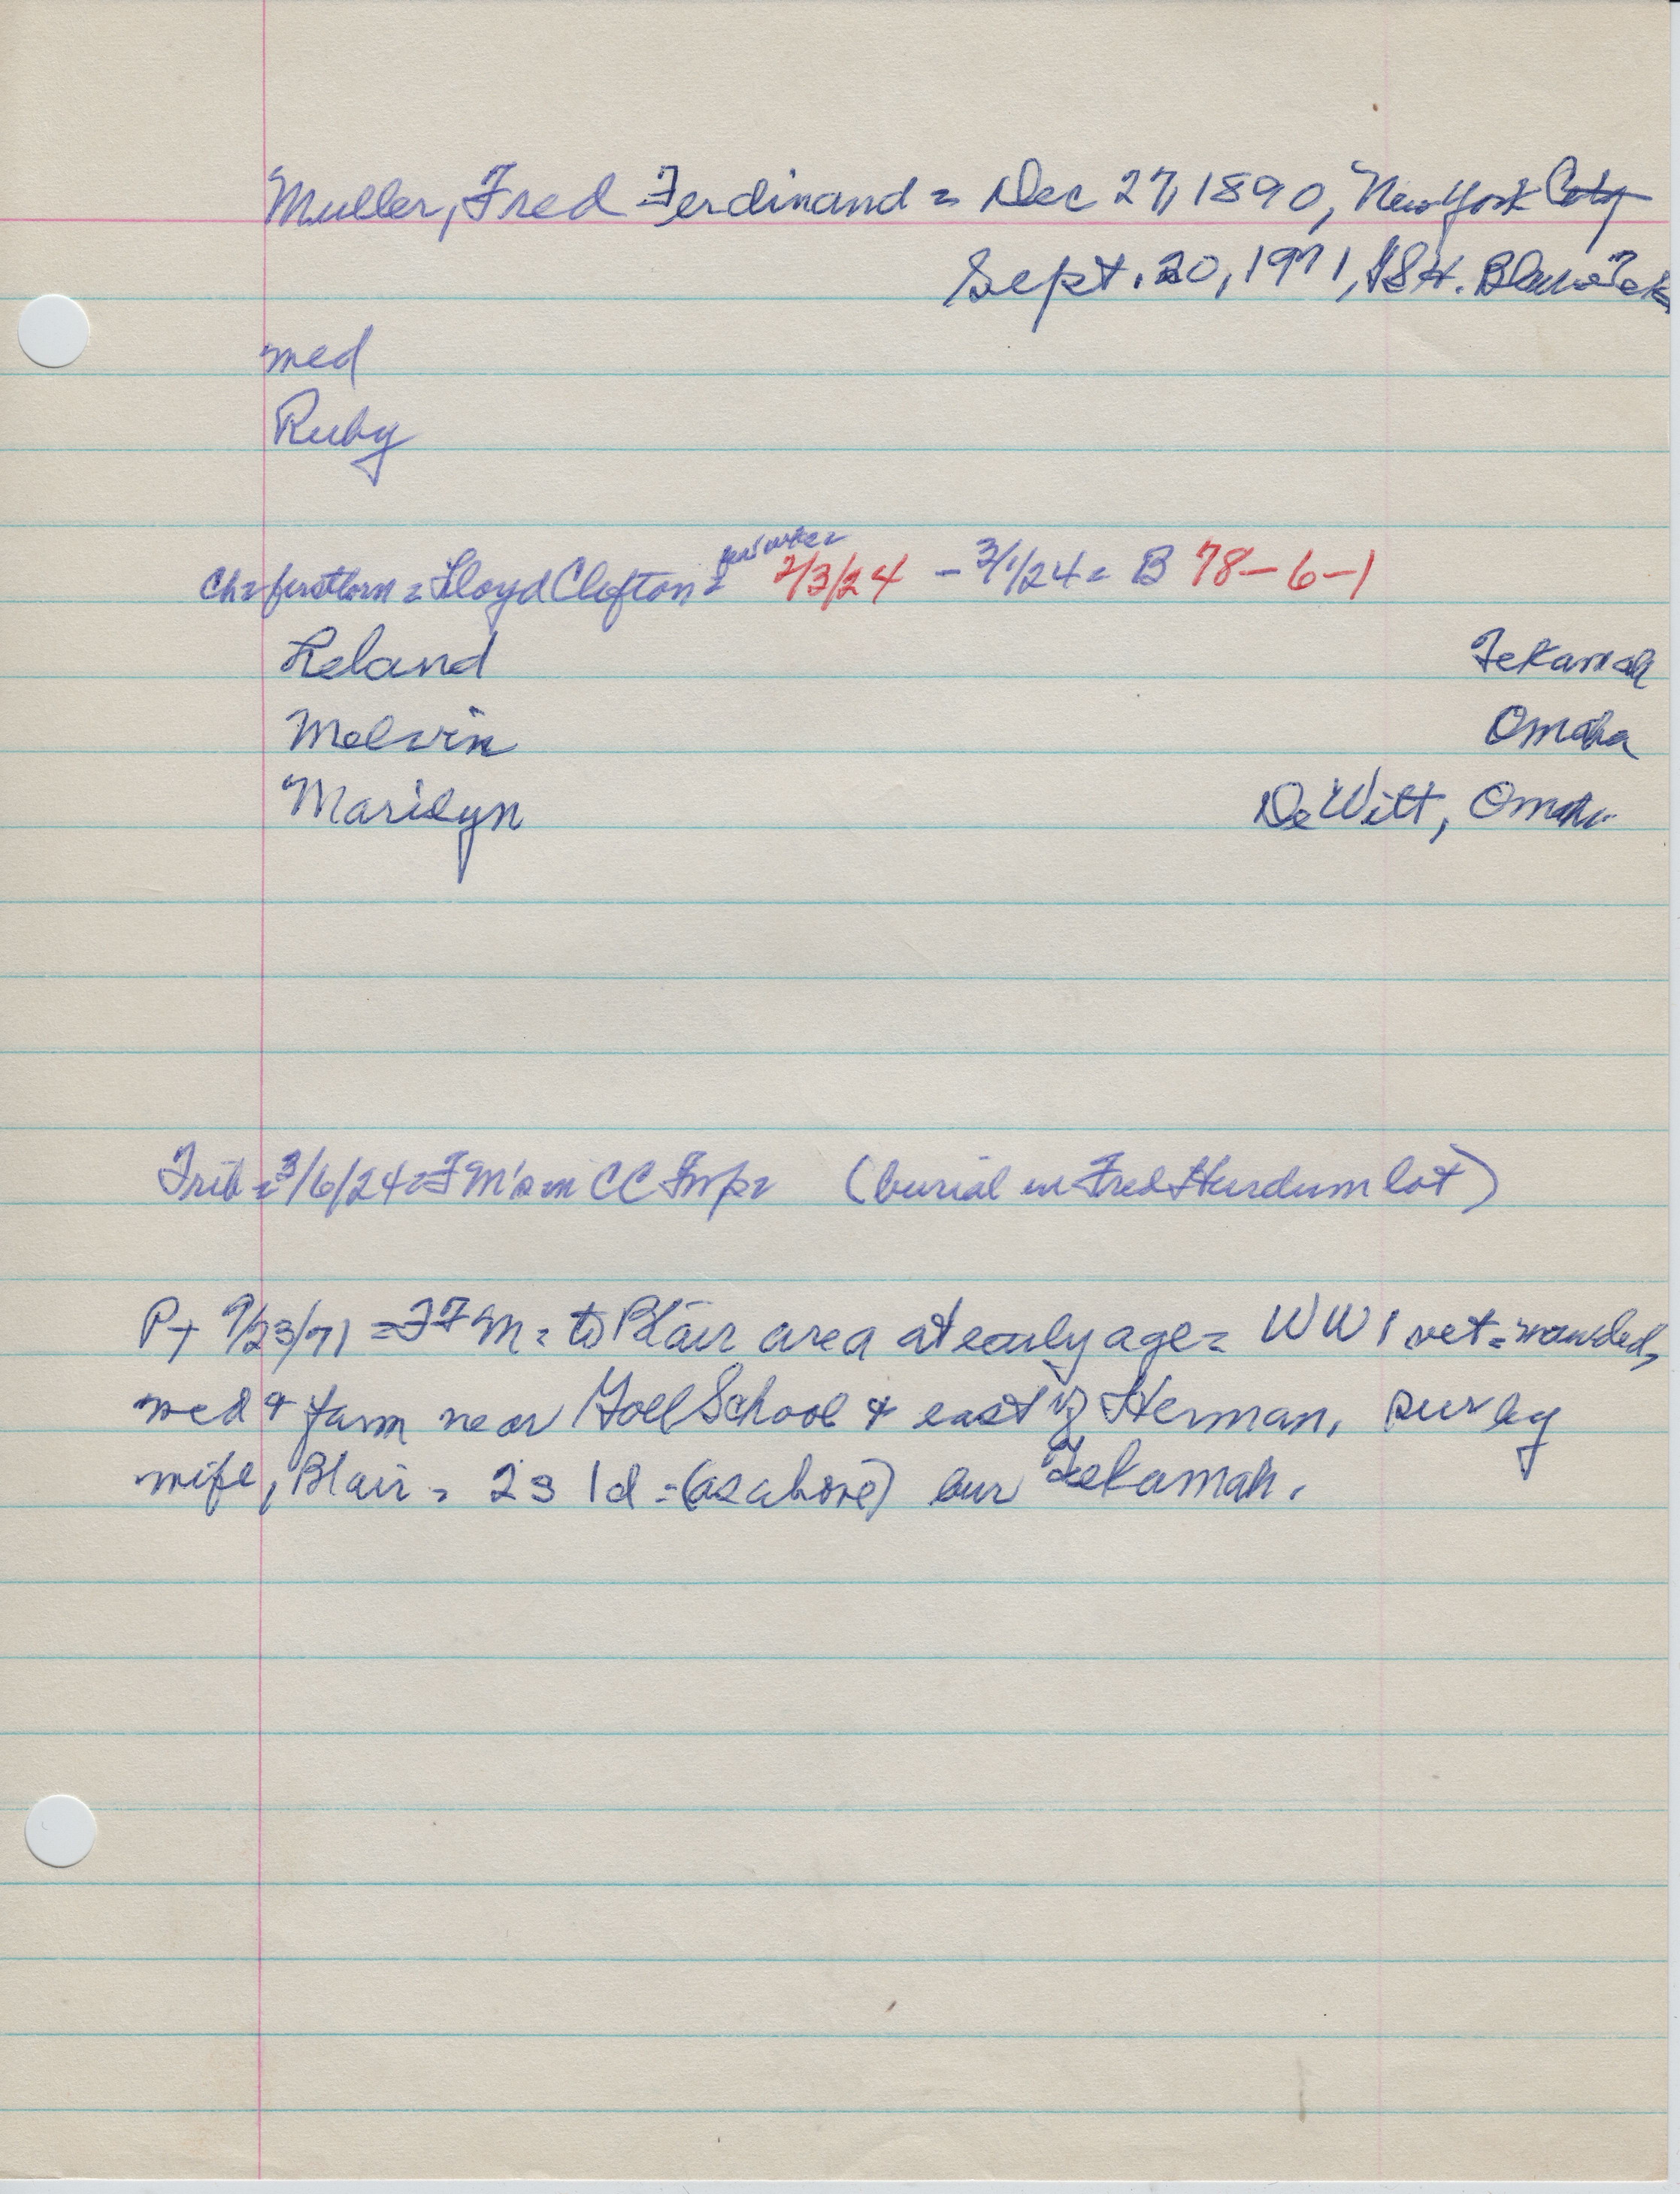 Muller, Fred Ferdinand = Dec 27, 1890, New York City
Sept. 20, 1971, Blair = Tek
med
Ruby
Ch = firstborn = Lloyd Clifton = 2/3/24 - 3/1/24 = B 78-6-1
Leland Tekamah
Melvin Omaha
Marilyn DeWitt, Omaha
Trib = 3/6/24 = FM's in CC Twp = (burial in Fred Hurdum lot)
PT 9/23/71 = FFM = to Blair area at early age = WW1 vet = wounded,
med & farm near School & east of Herman, sur by
wife, Blair = 2s 1d = (as above) bur Tekamah.